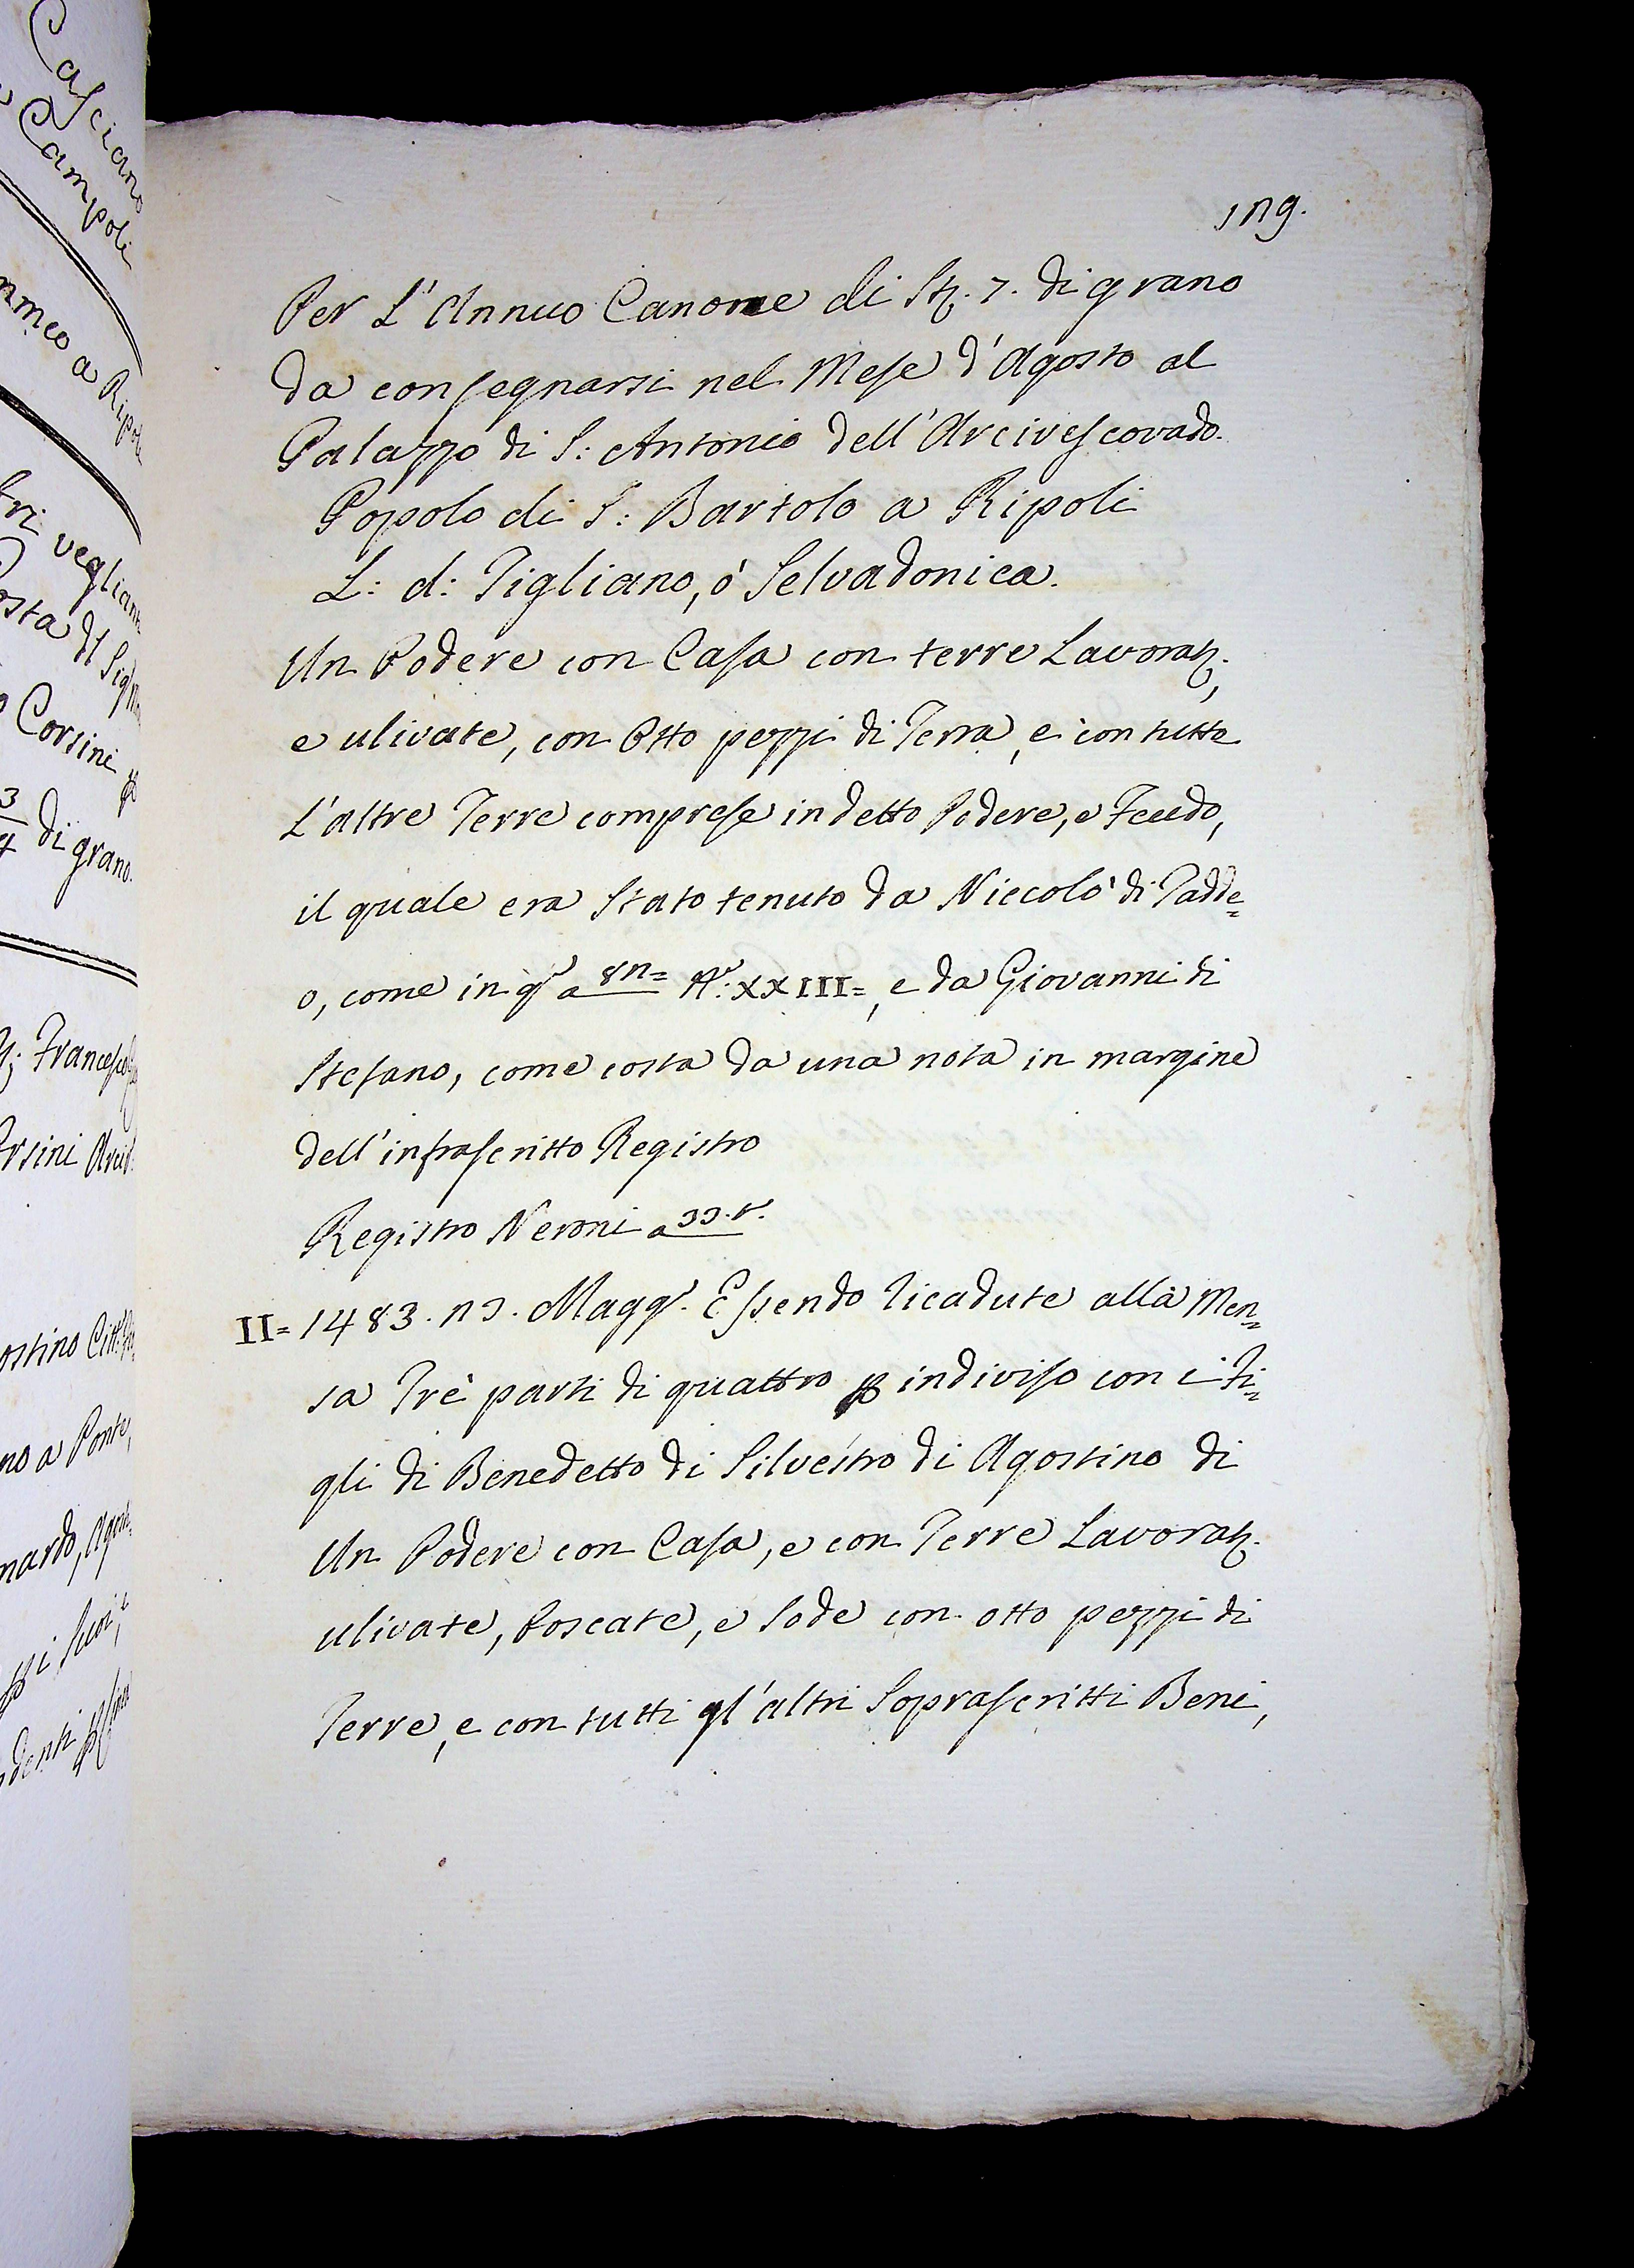 Casciano
Campoli
mmeo a Ripoli
tri vegliant
Corsini
3/4 di grano.
Francesco
rsini Arciv.
ostino Citt.
no a Ponte,
nardo, Agost=
129.
Per L'Annuo Canone di St. 7. di grano
da consegnarsi nel Mese d'Agosto al
Palazzo di S: Antonio dell'Arcivescovado.
Popolo di S: Bartolo a Ripoli
L: d: Tigliano, ò Selvadonica.
Un Podere con Casa con terre Lavoratz.,
e ulivate, con Otto pezzi di Terra, e con tutte
L'altre Terre comprese in detto Podere, e Feudo,
il quale era Stato tenuto da Niccolò di Tadde=
o, come in qo a 82= No: XXIII=, e da Giovanni di
Stefano, come costa da una nota in margine
dell'infrascritto Registro
Registro Neroni a 55.v.
II= 1483. 25. Maggo. Essendo ricadute alla Men=
sa Trè parti di quattro p indiviso con i Fi=
gli di Benedetto di Silvestro di Agostino di
Un Podere con Casa, e con Terre Lavoratz.
ulivate, boscate, e Sode con otto pezzi di
Terre, e con tutti gl'altri Soprascritti Beni,